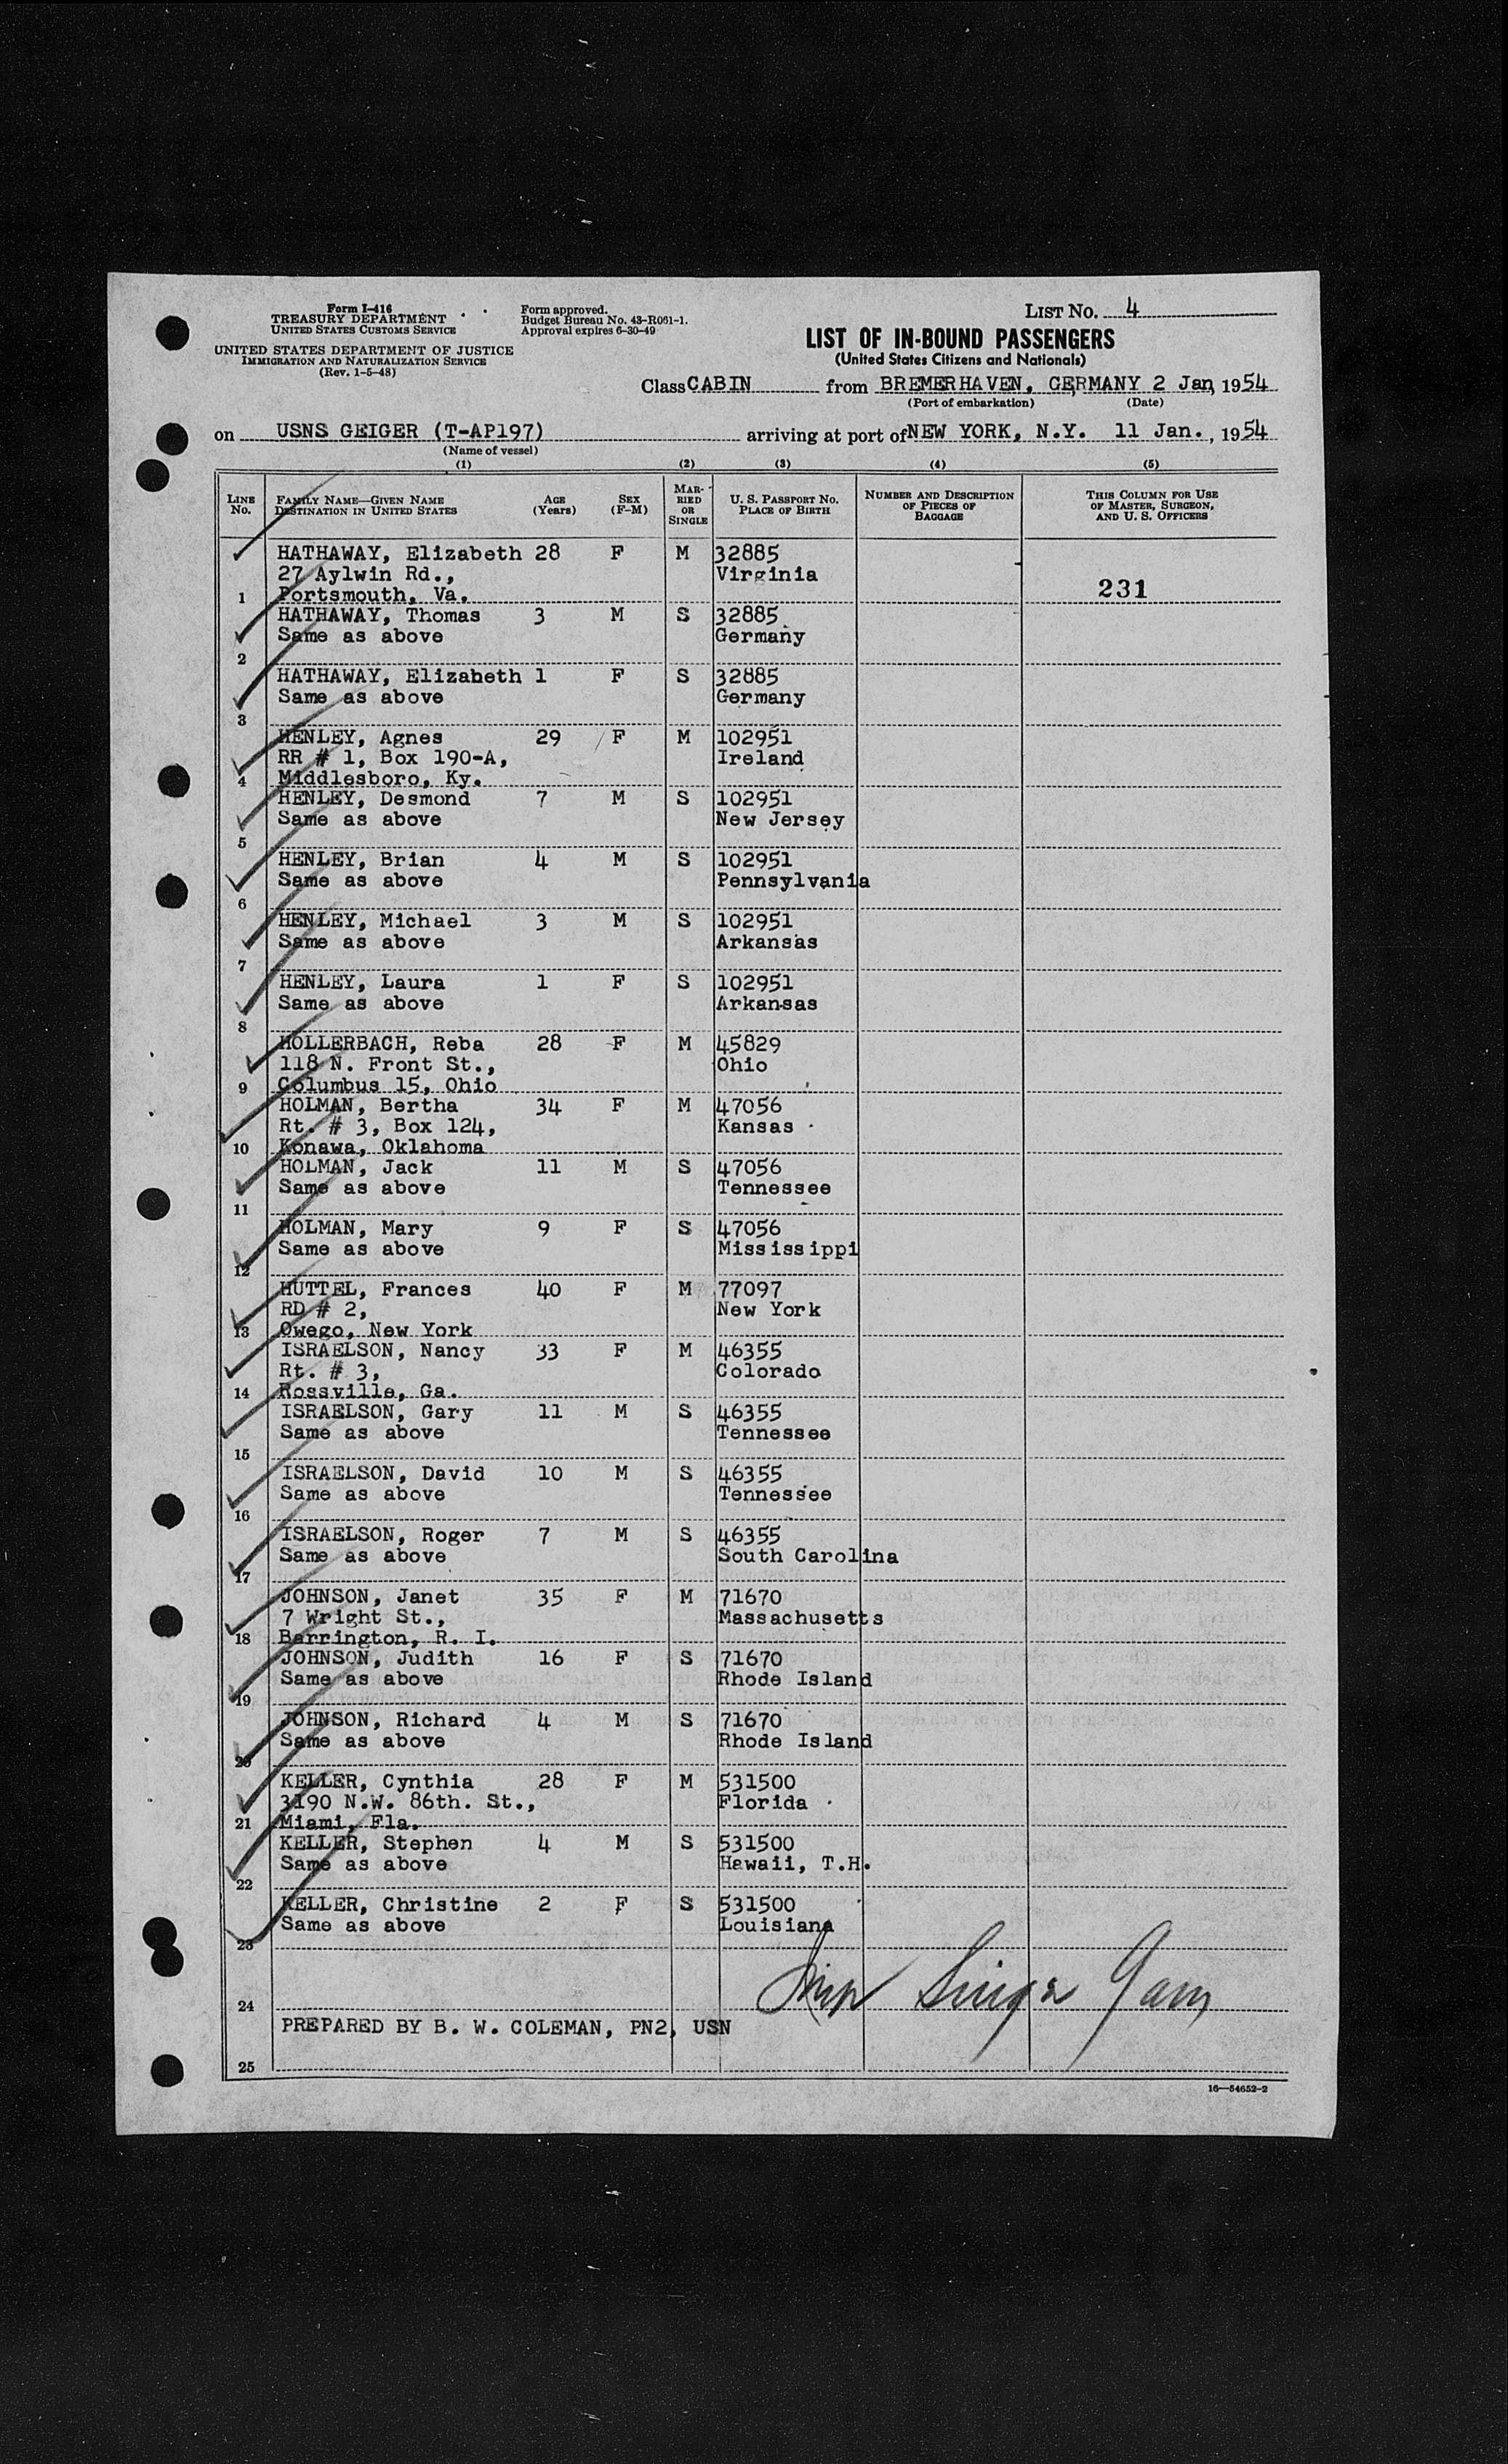 Form I-416
TREASURY DEPARTMENT
UNITED STATES CUSTOMS SERVICE
UNITED STATES DEPARTMENT OF JUSTICE
IMMIGRATION AND NATURALIZATION SERVICE
(Rev. 1-5-48)
Form approved.
Budget Bureau No. 43-R061-1.
Approval expires 6-30-49
LIST NO. 4
LIST OF IN-BOUND PASSENGERS
(United States Citizens and Nationals)
Class CABIN from BREMERHAVEN, GERMANY 2 Jan, 1954
(Port of embarkation) (Date)
on USNS GEIGER (T-AP197) arriving at port of NEW YORK, N.Y. 11 Jan., 1954
(Name of vessel)
(1) (2) (3) (4) (5)
LINE NO. FAMILY NAME—GIVEN NAME DESTINATION IN UNITED STATES AGE (Years) SEX (F-M) MARRIED OR SINGLE U. S. PASSPORT NO. PLACE OF BIRTH NUMBER AND DESCRIPTION OF PIECES OF BAGGAGE THIS COLUMN FOR USE OF MASTER, SURGEON, AND U. S. OFFICERS
HATHAWAY, Elizabeth 28 F M 32885
27 Aylwin Rd., Virginia
1 Portsmouth, Va. 231
HATHAWAY, Thomas 3 M S 32885
Same as above Germany
2
HATHAWAY, Elizabeth 1 F S 32885
Same as above Germany
3
HENLEY, Agnes 29 F M 102951
RR # 1, Box 190-A, Ireland
4 Middlesboro, Ky.
HENLEY, Desmond 7 M S 102951
Same as above New Jersey
5
HENLEY, Brian 4 M S 102951
Same as above Pennsylvania
6
HENLEY, Michael 3 M S 102951
Same as above Arkansas
7
HENLEY, Laura 1 F S 102951
Same as above Arkansas
8
HOLLERBACH, Reba 28 F M 45829
118 N. Front St., Ohio
9 Columbus 15, Ohio
HOLMAN, Bertha 34 F M 47056
Rt. # 3, Box 124, Kansas
10 Konawa, Oklahoma
HOLMAN, Jack 11 M S 47056
Same as above Tennessee
11
HOLMAN, Mary 9 F S 47056
Same as above Mississippi
12
HUTTEL, Frances 40 F M 77097
RD # 2, New York
13 Owego, New York
ISRAELSON, Nancy 33 F M 46355
Rt. # 3, Colorado
14 Rossville, Ga.
ISRAELSON, Gary 11 M S 46355
Same as above Tennessee
15
ISRAELSON, David 10 M S 46355
Same as above Tennessee
16
ISRAELSON, Roger 7 M S 46355
Same as above South Carolina
17
JOHNSON, Janet 35 F M 71670
7 Wright St., Massachusetts
18 Barrington, R. I.
JOHNSON, Judith 16 F S 71670
Same as above Rhode Island
19
JOHNSON, Richard 4 M S 71670
Same as above Rhode Island
20
KELLER, Cynthia 28 F M 531500
3190 N.W. 86th. St., Florida
21 Miami, Fla.
KELLER, Stephen 4 M S 531500
Same as above Hawaii, T.H.
22
KELLER, Christine 2 F S 531500
Same as above Louisiana
23
24
PREPARED BY B. W. COLEMAN, PN2, USN
25
16—54652-2